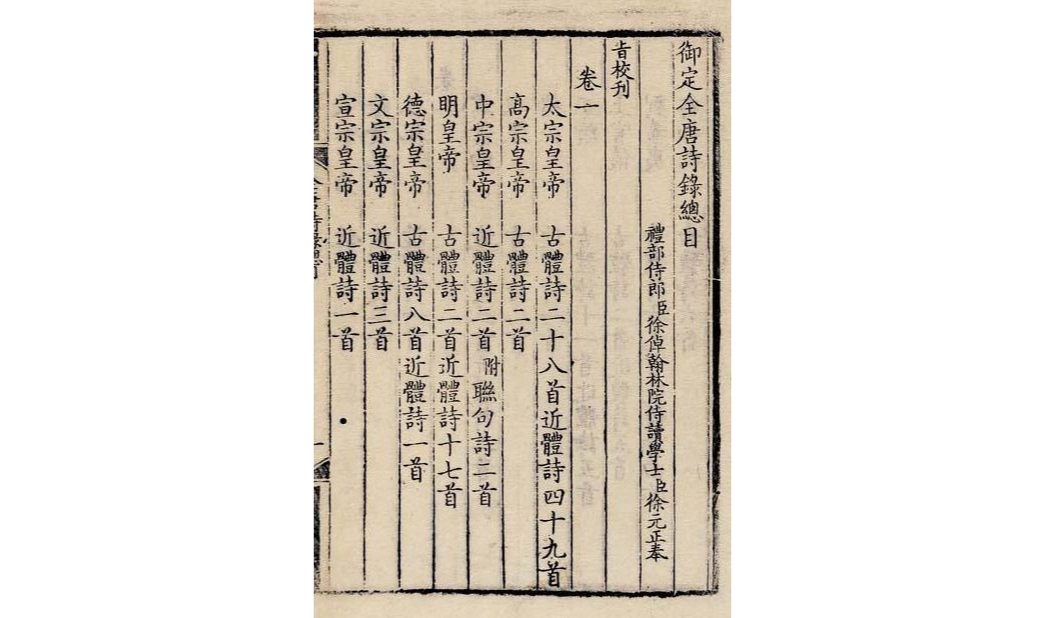 御定全唐詩錄總目
禮部侍郎臣徐倬翰林院侍讀學士臣徐元正奉
旨校刊
卷一
太宗皇帝 古體詩二十八首近體詩四十九首
高宗皇帝 古體詩二首
中宗皇帝 近體詩二首附聯句詩二首
明皇帝 古體詩二首近體詩十七首
德宗皇帝 古體詩八首近體詩一首
文宗皇帝 近體詩三首
宣宗皇帝 近體詩一首